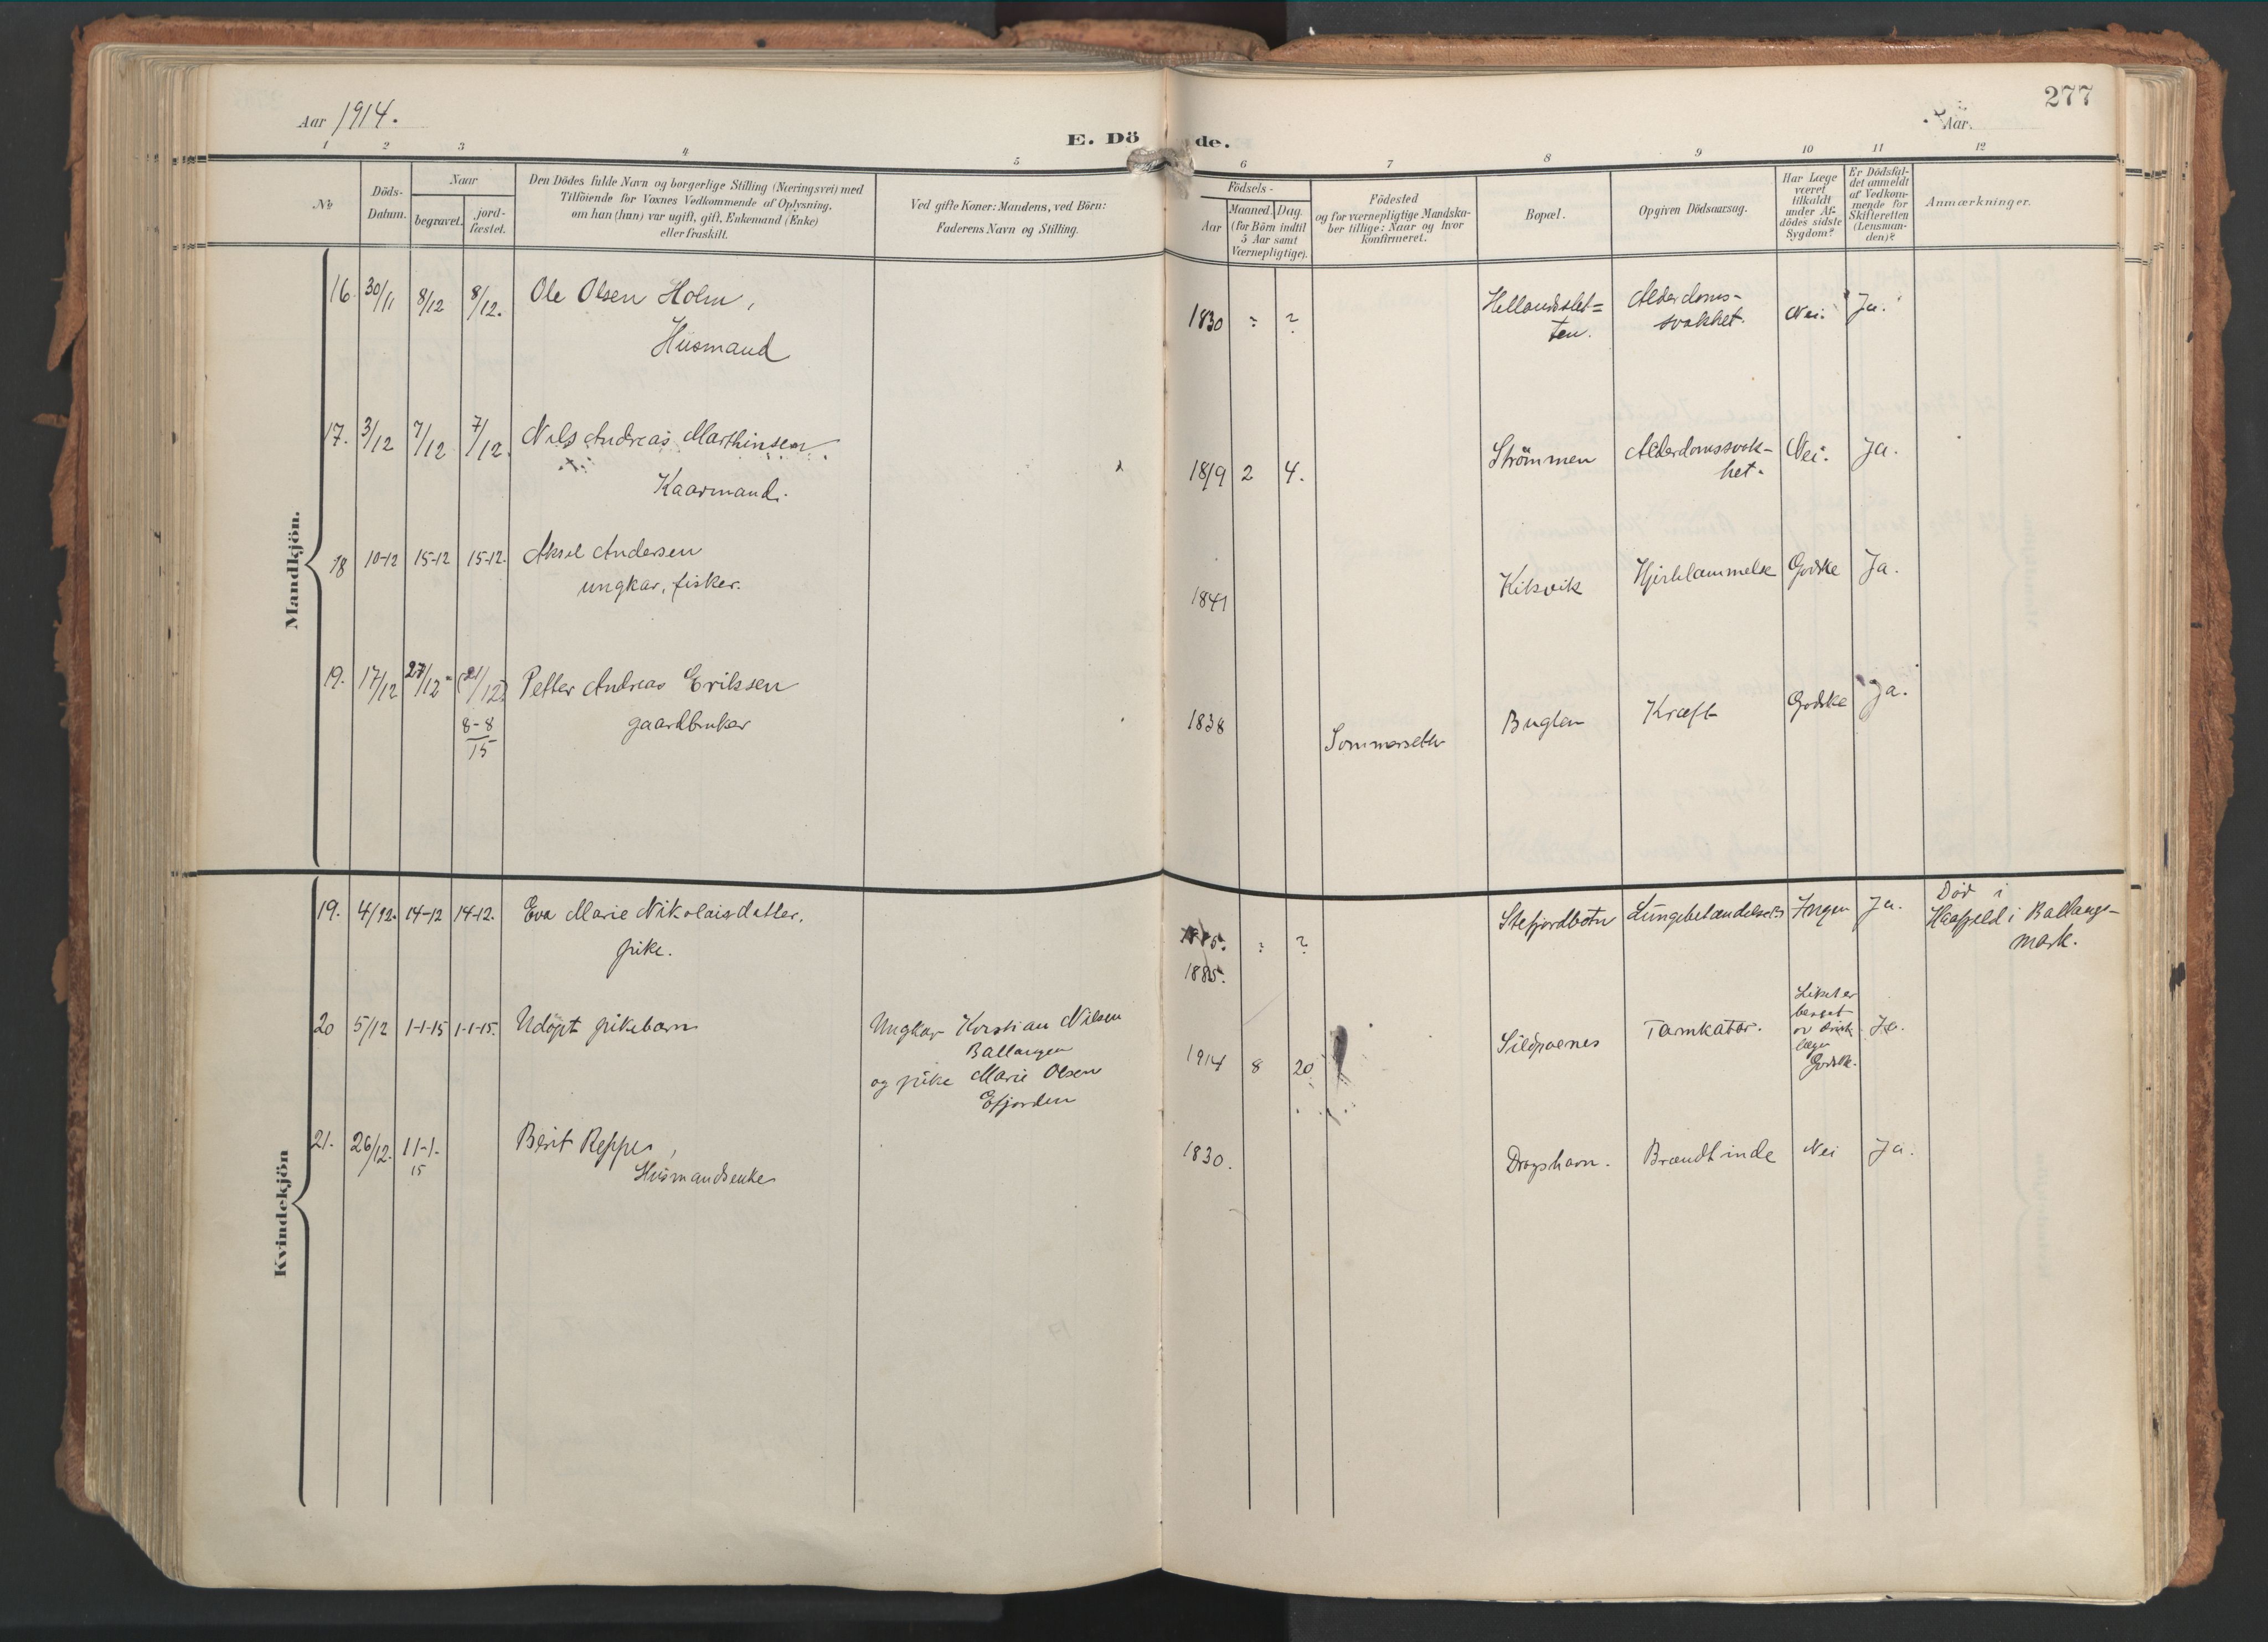 Aar 1914.
E. Dö de.
Aar.
277
1 2 3 4 5 6 7 8 9 10 11 12
№
Döds-
Datum.
Naar
begravet.
jord-
fæstet.
Den Dödes fulde Navn og borgerlige Stilling (Næringsvei) med
Tilföiende for Voxnes Vedkommende af Oplysning,
om han (hun) var ugift, gift, Enkemand (Enke)
eller fraskilt.
Ved gifte Koner: Mandens, ved Börn:
Faderens Navn og Stilling.
Födsels-
Aar
Maaned. Dag.
(for Börn indtil
5 Aar samt
Værnepligtige).
Födested
og for værnepligtige Mandska-
ber tillige: Naar og hvor
konfirmeret.
Bopæl.
Opgiven Dödsaarsag.
Har Læge
været
tilkaldt
under Af-
dödes sidste
Sygdom?
Er Dödsfal-
det anmeldt
af Vedkom-
mende for
Skifteretten
(Lensman-
den)?
Anmærkninger.
Mandkjön.
16. 30/11 8/12 8/12. Ole Olsen Holm,
Husmand
1830 : ?
Hellandsslet=
ten.
Alderdoms-
svakhet.
Nei. Ja.
17. 3/12 7/12 7/12. Nils Andreas Marthinsen
Kaarmand.
1819 2 4.
Strömmen
Alderdomssvak-
het.
Nei. Ja.
18 10-12 15-12 15-12. Aksel Andersen
ungkar, fisker.
1841
Kilsvik
Hjertelammelse
Godske Ja.
19. 17/12 27/12 (21/12)
8-8
15
Petter Andreas Eriksen
gaardbruker
1838
Sommerseth
Buglen
Kræft
Godske Ja.
Kvindekjön
19. 4/12. 14-12 14-12. Eva Marie Nikolaisdatter,
pike.
: ?
1885.
Stefjordbotn
Lungebetændelse
Ingen Ja.
Död i
i Ballangs-
mark.
20 5/12 1-1-15 1-1-15. Udöpt pikebarn
Ungkar Kristian Nilsen
Ballangen
og pike Marie Olsen
Efjorden
1914 8 20
Sildpoenes
Tarmkatar.
Liket er
læge
Godske.
Ja.
21. 26/12. 11-1-
15
Berit Reppe,
Husmandsenke
1830.
Dragshavn.
Brændtinde
Nei Ja.